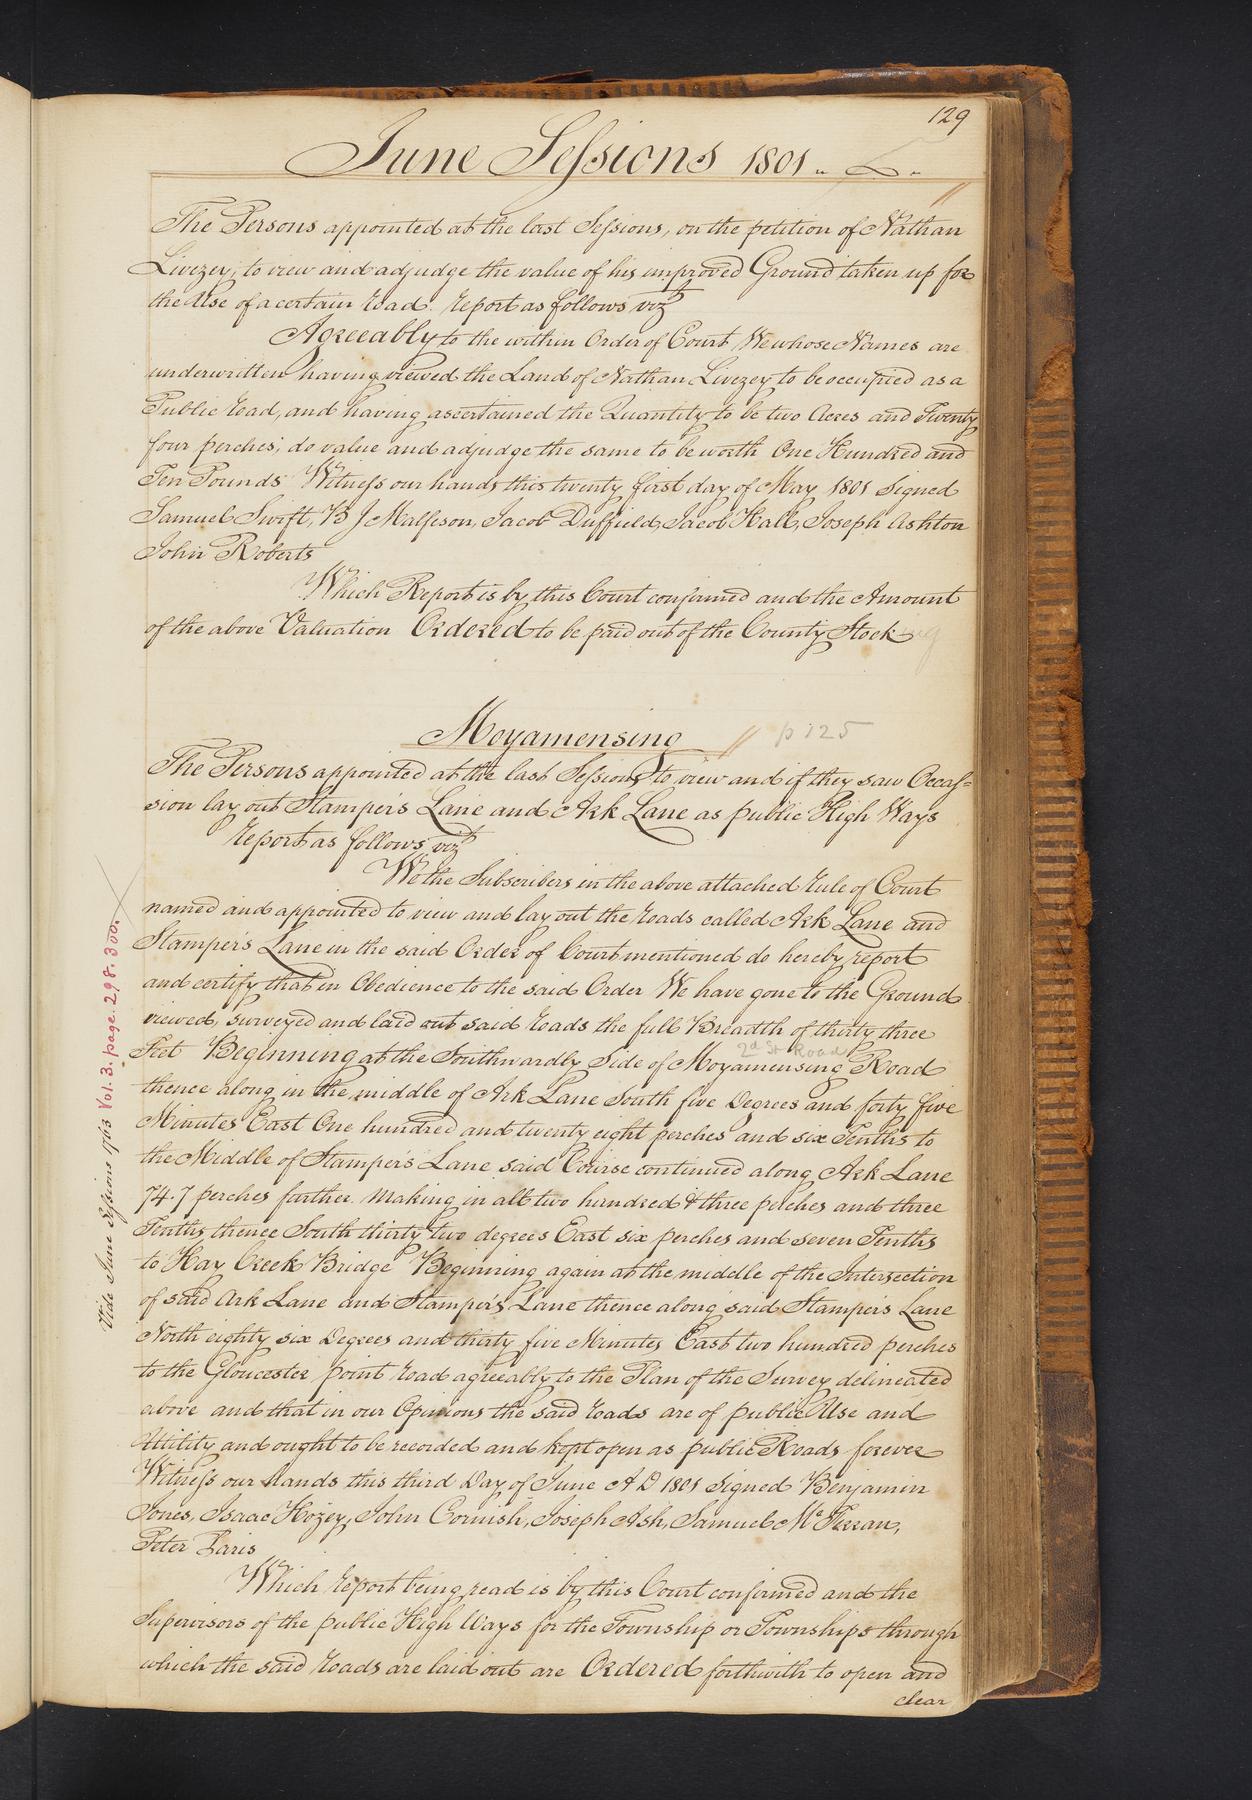 129
June Sessions 1801
The Persons appointed at the last Sessions, on the petition of Nathan
Livezey, to view and adjudge the value of his improved Ground taken up for
the Use of a certain Road. Report as follows vizt
Agreeably to the within Order of Court We whose Names are
underwritten having viewed the Land of Nathan Livezey to be occupied as a
Public Road, and having ascertained the Quantity to be two Acres and Twenty
four perches; do value and adjudge the same to be worth One Hundred and
Ten Pounds Witness our hands this twenty first day of May 1801 Signed
Samuel Swift, B J Malleson, Jacob Duffield, Jacob Hall, Joseph Ashton
John Roberts
Which Report is by this Court confirmed and the Amount
of the above Valuation Ordered to be paid out of the County Stock
Moyamensing // p 125
The Persons appointed at the last Sessions to view and if they saw Occas=
sion lay out Stamper's Lane and Ark Lane as public High Ways
Report as follows vizt
We the Subscribers in the above attached Rule of Court
named and appointed to view and lay out the Roads called Ark Lane and
Stampers Lane in the said Order of Court mentioned do hereby report
and certify that in Obedience to the said Order We have gone to the Ground
viewed, surveyed and laid out said Roads the full Breadth of thirty three
2d St Road
Feet Beginning at the Southwardly Side of Moyamensing Road
thence along in the middle of Ark Lane South five Degrees and forty five
Minutes East One hundred and twenty eight perches and six Tenths to
the Middle of Stamper's Lane said Course continued along Ark Lane
74.7 perches further making in all two hundred & three perches and three
Tenths thence South thirty two degrees East six perches and seven Tenths
to Hay Creek Bridge Beginning again at the middle of the Intersection
of said Ark Lane and Stamper's Lane thence along said Stampers Lane
North eighty six Degrees and thirty five Minutes East two hundred perches
to the Gloucester point Road agreeably to the Plan of the Survey delineated
above and that in our Opinions the said Roads are of public Use and
Utility and ought to be recorded and kept open as public Roads forever
Witness our hands this third Day of June A D 1801 Signed Benjamin
Jones, Isaac Hozey, John Cornish, Joseph Ash, Samuel McFerran,
Peter Paris
Which Report being read is by this Court confirmed and the
Supervisors of the public High Ways for the Township or Townships through
which the said Roads are laid out are Ordered forthwith to open and
clear
Vide June Sessions 1763 Vol. 3. page. 298. 300.